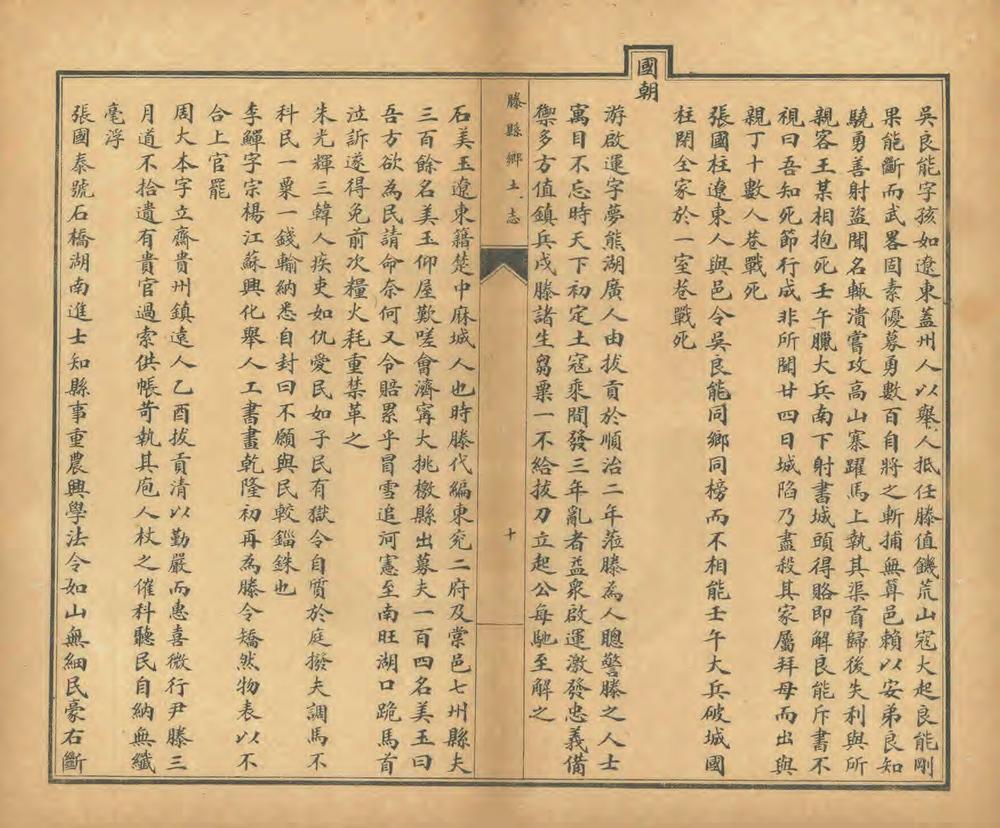 吳良能字孩如遼東蓋州人以舉人抵任滕值饑荒山寇大起良能剛
果能斷而武畧固素優募勇數百自將之斬捕無算邑賴以安弟良知
驍勇善射盜聞名輙潰嘗攻高山寨躍馬上執其渠首歸後失利與所
親客王某相抱死壬午臘大兵南下射書城頭得賂即解良能斥書不
視曰吾知死節行成非所聞廿四日城陷乃盡殺其家屬拜母而出與
親丁十數人巷戰死
張國柱遼東人與邑令吳良能同鄉同榜而不相能壬午大兵破城國
柱閉全家於一室巷戰死
國朝
游啟運字夢熊湖廣人由拔貢於順治二年蒞滕為人聰警滕之人士
寓目不忘時天下初定土寇乘間發三年亂者益衆啟運激發忠義備
禦多方值鎮兵戍滕諸生芻粟一不給拔刀立起公每馳至解之
滕縣鄉土志
十
石美玉遼東籍楚中麻城人也時滕代編東兖二府及棠邑七州縣夫
三百餘名美玉仰屋歎嗟會濟寗大挑檄縣出募夫一百四名美玉曰
吾方欲為民請命奈何又令賠累乎冒雪追河憲至南旺湖口跪馬首
泣訴遂得免前次糧火耗重禁革之
朱光輝三韓人疾吏如仇愛民如子民有獄令自質於庭撥夫調馬不
科民一粟一錢輸納悉自封曰不願與民較錙銖也
李鱓字宗楊江蘇興化舉人工書畫乾隆初再為滕令矯然物表以不
合上官罷
周大本字立齋貴州鎮遠人乙酉拔貢清以勤嚴而惠喜微行尹滕三
月道不拾遺有貴官過索供帳苛執其庖人杖之催科聽民自納無纖
毫浮
張國泰號石橋湖南進士知縣事重農興學法令如山無細民豪右斷